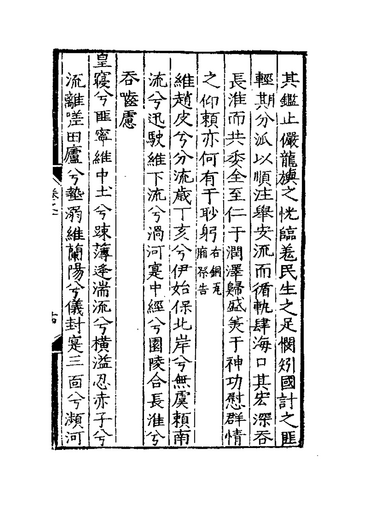 其鑑止儼龍旗之怳臨羗民生之足憫矧國計之匪
輕期分派以順注舉安流而循軌肆海口其宏深吞
長淮而共委全至仁于潤澤歸咸美于神功慰群情
之仰賴亦何有于眇躬右銅瓦
廂祭告
維趙皮兮分流歲丁亥兮伊始保北岸兮無虞頼南
流兮迅駛維下流兮渦河寔中經兮園陵合長淮兮
吞噬慮
皇寢兮匪寧維中土兮踈薄逢湍流兮橫溢忍赤子兮
流離嗟田廬兮墊溺維蘭陽兮儀封寔三面兮瀕河
卷之二
十四